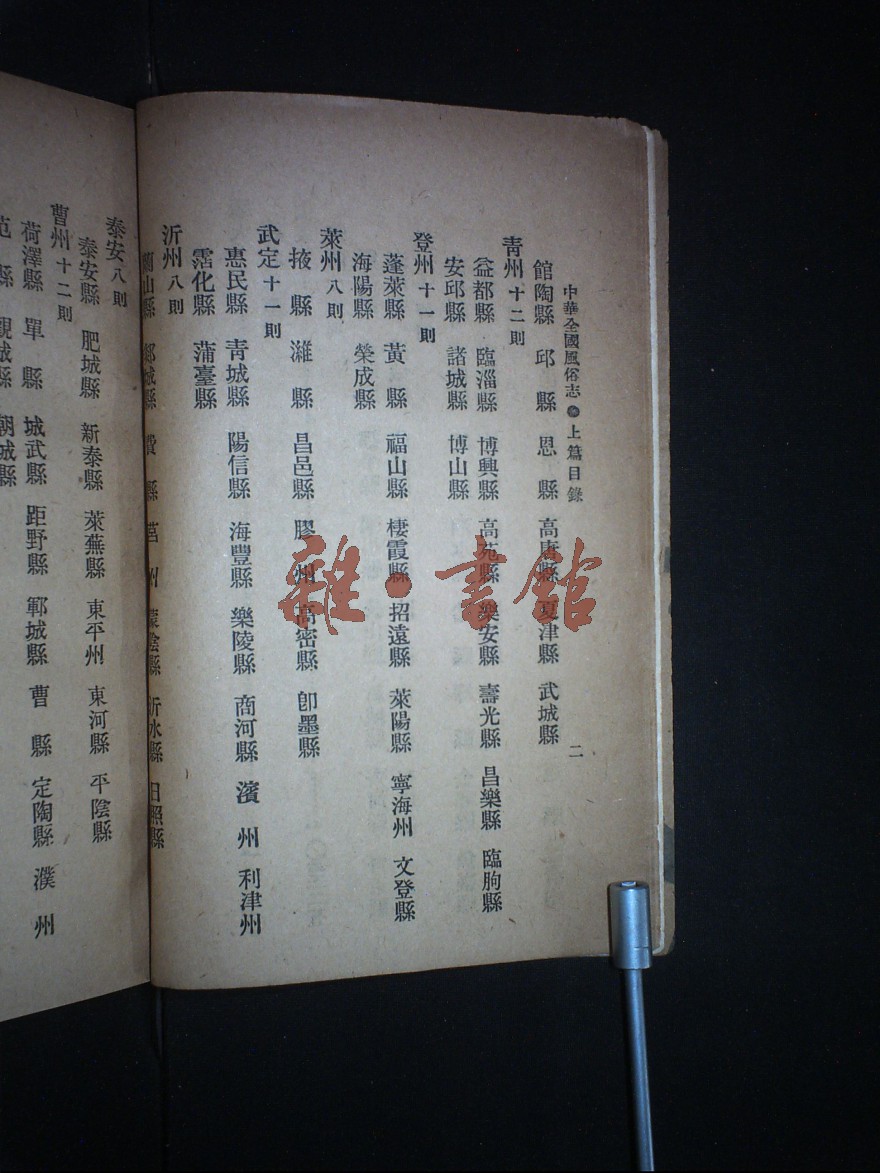 中華全國風俗志 上篇目錄 二
館陶縣 邱縣 恩縣 高唐縣 夏津縣 武城縣
青州十二則
益都縣 臨淄縣 博興縣 高苑縣 樂安縣 壽光縣 昌樂縣 臨朐縣
安邱縣 諸城縣 博山縣
登州十一則
蓬萊縣 黃縣 福山縣 棲霞縣 招遠縣 萊陽縣 寧海州 文登縣
海陽縣 榮成縣
萊州八則
掖縣 濰縣 昌邑縣 膠州 高密縣 卽墨縣
武定十一則
惠民縣 青城縣 陽信縣 海豐縣 樂陵縣 商河縣 濱州 利津州
霑化縣 蒲臺縣
沂州八則
蘭山縣 郯城縣 費縣 莒州 蒙陰縣 沂水縣 日照縣
泰安八則
泰安縣 肥城縣 新泰縣 萊蕪縣 東平州 東河縣 平陰縣
曹州十二則
荷澤縣 單縣 城武縣 距野縣 鄆城縣 曹縣 定陶縣 濮州
范縣 觀城縣 朝城縣
雜·書館